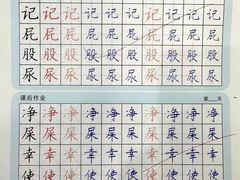 记 记 记 记 记 记 记 记 记 记
屁 屁 屁 屁 屁 屁 屁 屁 屁 屁
股 股 股 股 股 股 股 股 股 股
尿 尿 尿 尿 尿 尿 尿 尿 尿 尿
课后作业 第__天
净 净 净 净 净 净 净 净 净 净
屎 屎 屎 屎 屎 屎 屎 屎 屎 屎
幸 幸 幸 幸 幸 幸 幸 幸 幸 幸
使 使 使 使 使 使 使 使 使 使